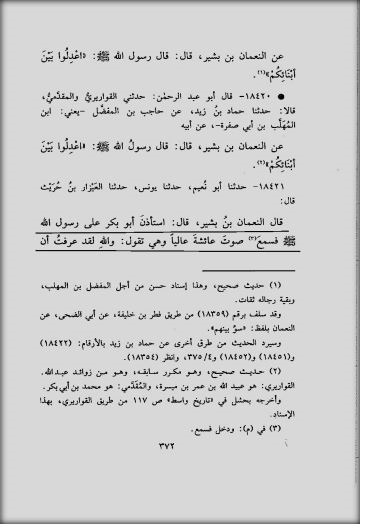 عن النعمان بن بشير، قال: قال رسول الله ﷺ: «اعْدِلُوا بَيْنَ
أَبْنَائِكُمْ»(١).
● ١٨٤٢٠- قال أبو عبد الرحمٰن: حدثني القواريريُّ والمقدَّميُّ،
قالا: حدثنا حماد بنُ زيد، عن حاجب بن المفضَّل -يعني: ابن
المُهَلَّب بن أبي صفرة-، عن أبيه
عن النعمان بن بشير، قال: قال رسولُ الله ﷺ: «اعْدِلُوا بَيْنَ
أَبْنَائِكُمْ»(٢).
١٨٤٢١- حدثنا أبو نُعيم، حدثنا يونس، حدثنا العَيْزار بنُ حُرَيْث
قال:
قال النعمان بنُ بشير، قال: استأذنَ أبو بكر على رسول الله
ﷺ فسمعَ(٣) صوتَ عائشةَ عالياً وهي تقول: واللهِ لقد عرفتُ أن
(١) حديث صحيح، وهذا إسناد حسن من أجل المفضل بن المهلب،
وبقية رجاله ثقات.
وقد سلف برقم (١٨٣٥٩) من طريق فطر بن خليفة، عن أبي الضحى، عن
النعمان بلفظ: «سوِّ بينهم».
وسيرد الحديث من طرق أخرى عن حماد بن زيد بالأرقام: (١٨٤٢٢)
و(١٨٤٥١) و(١٨٤٥٢) و٣٧٥/٤، وانظر (١٨٣٥٤).
(٢) حديث صحيح، وهو مكرر سابقه، وهو من زوائد عبدالله.
القواريري: هو عبيد الله بن عمر بن ميسرة، والمُقَدَّمي: هو محمد بن أبي بكر.
وأخرجه بحشل في «تاريخ واسط» ص ١١٧ من طريق القواريري، بهذا
الإسناد.
(٣) في (م): ودخل فسمع.
٣٧٢